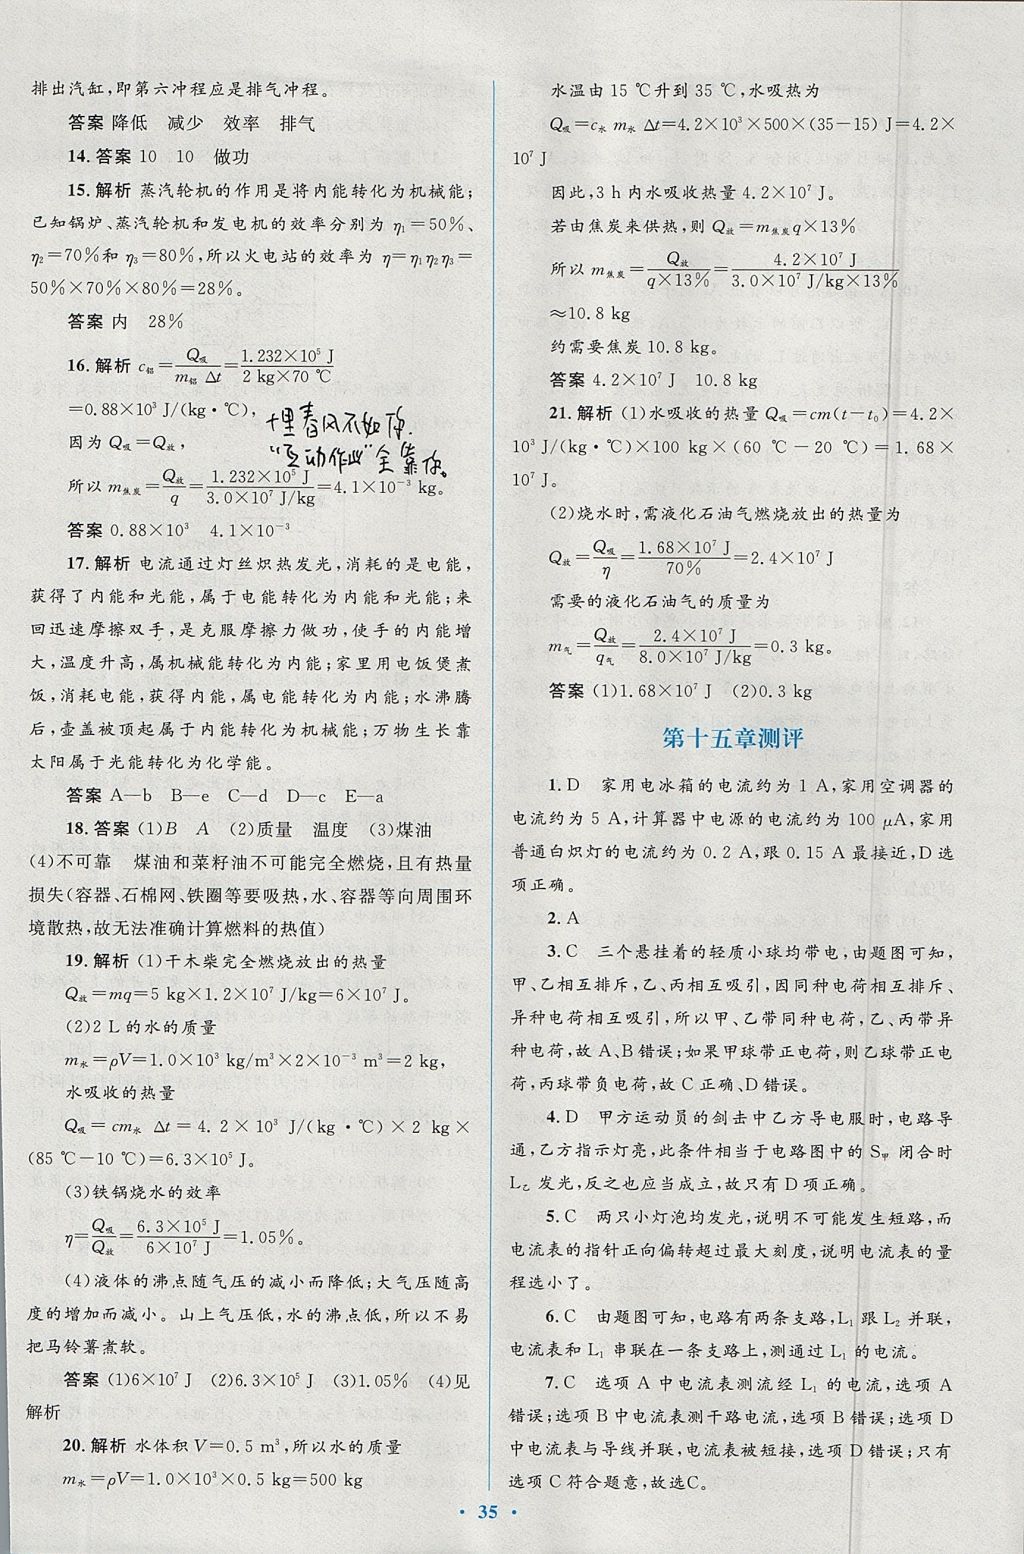 排出汽缸,即第六冲程应是排气冲程。
答案 降低 减少 效率 排气
14.答案 10 10 做功
15.解析 蒸汽轮机的作用是将内能转化为机械能;
已知锅炉、蒸汽轮机和发电机的效率分别为 η₁=50%、
η₂=70%和 η₃=80%,所以火电站的效率为 η=η₁η₂η₃=
50%×70%×80%=28%。
答案 内 28%
16.解析 c铝=Q吸/(m铝 Δt)=1.232×10⁵ J/(2 kg×70 ℃)
=0.88×10³ J/(kg·℃),
因为 Q吸=Q放,
十里春风不如你.
“互动作业”全靠你。
所以 m焦炭=Q放/q=1.232×10⁵ J/(3.0×10⁷ J/kg)=4.1×10⁻³ kg。
答案 0.88×10³ 4.1×10⁻³
17.解析 电流通过灯丝炽热发光,消耗的是电能,
获得了内能和光能,属于电能转化为内能和光能;来
回迅速摩擦双手,是克服摩擦力做功,使手的内能增
大,温度升高,属机械能转化为内能;家里用电饭煲煮
饭,消耗电能,获得内能,属电能转化为内能;水沸腾
后,壶盖被顶起属于内能转化为机械能;万物生长靠
太阳属于光能转化为化学能。
答案 A—b B—e C—d D—c E—a
18.答案 (1)B A (2)质量 温度 (3)煤油
(4)不可靠 煤油和菜籽油不可能完全燃烧,且有热量
损失(容器、石棉网、铁圈等要吸热,水、容器等向周围环
境散热,故无法准确计算燃料的热值)
19.解析 (1)干木柴完全燃烧放出的热量
Q放=mq=5 kg×1.2×10⁷ J/kg=6×10⁷ J。
(2)2 L的水的质量
m水=ρV=1.0×10³ kg/m³×2×10⁻³ m³=2 kg,
水吸收的热量
Q吸=cm水 Δt=4.2×10³ J/(kg·℃)×2 kg×
(85 ℃-10 ℃)=6.3×10⁵ J。
(3)铁锅烧水的效率
η=Q吸/Q放=6.3×10⁵ J/(6×10⁷ J)=1.05%。
(4)液体的沸点随气压的减小而降低;大气压随高
度的增加而减小。山上气压低,水的沸点低,所以不易
把马铃薯煮软。
答案 (1)6×10⁷ J (2)6.3×10⁵ J (3)1.05% (4)见
解析
20.解析 水体积 V=0.5 m³,所以水的质量
m水=ρV=1.0×10³×0.5 kg=500 kg
水温由 15 ℃升到 35 ℃,水吸热为
Q吸=c水 m水 Δt=4.2×10³×500×(35-15) J=4.2×
10⁷ J
因此,3 h内水吸收热量 4.2×10⁷ J。
若由焦炭来供热,则 Q放=m焦炭q×13%
所以 m焦炭=Q放/(q×13%)=4.2×10⁷ J/(3.0×10⁷ J/kg×13%)
≈10.8 kg
约需要焦炭 10.8 kg。
答案 4.2×10⁷ J 10.8 kg
21.解析 (1)水吸收的热量 Q吸=cm(t-t₀)=4.2×
10³ J/(kg·℃)×100 kg×(60 ℃-20 ℃)=1.68×
10⁷ J。
(2)烧水时,需液化石油气燃烧放出的热量为
Q放=Q吸/η=1.68×10⁷ J/70%=2.4×10⁷ J
需要的液化石油气的质量为
m气=Q放/q气=2.4×10⁷ J/(8.0×10⁷ J/kg)=0.3 kg。
答案 (1)1.68×10⁷ J (2)0.3 kg
第十五章测评
1.D 家用电冰箱的电流约为 1 A,家用空调器的
电流约为 5 A,计算器中电源的电流约为 100 μA,家用
普通白炽灯的电流约为 0.2 A,跟 0.15 A 最接近,D 选
项正确。
2.A
3.C 三个悬挂着的轻质小球均带电,由题图可知,
甲、乙相互排斥,乙、丙相互吸引,因同种电荷相互排斥、
异种电荷相互吸引,所以甲、乙带同种电荷,乙、丙带异
种电荷,故 A、B 错误;如果甲球带正电荷,则乙球带正电
荷,丙球带负电荷,故 C 正确、D 错误。
4.D 甲方运动员的剑击中乙方导电服时,电路导
通,乙方指示灯亮,此条件相当于电路图中的 S甲 闭合时
L乙发光,反之也应当成立,故只有 D 项正确。
5.C 两只小灯泡均发光,说明不可能发生短路,而
电流表的指针正向偏转超过最大刻度,说明电流表的量
程选小了。
6.C 由题图可知,电路有两条支路,L₁ 跟 L₂ 并联,
电流表和 L₁ 串联在一条支路上,测通过 L₁ 的电流。
7.C 选项 A 中电流表测流经 L₁ 的电流,选项 A
错误;选项 B 中电流表测干路电流,选项 B 错误;选项 D
中电流表与导线并联,电流表被短接,选项 D 错误;只有
选项 C 符合题意,故选C。
·35·